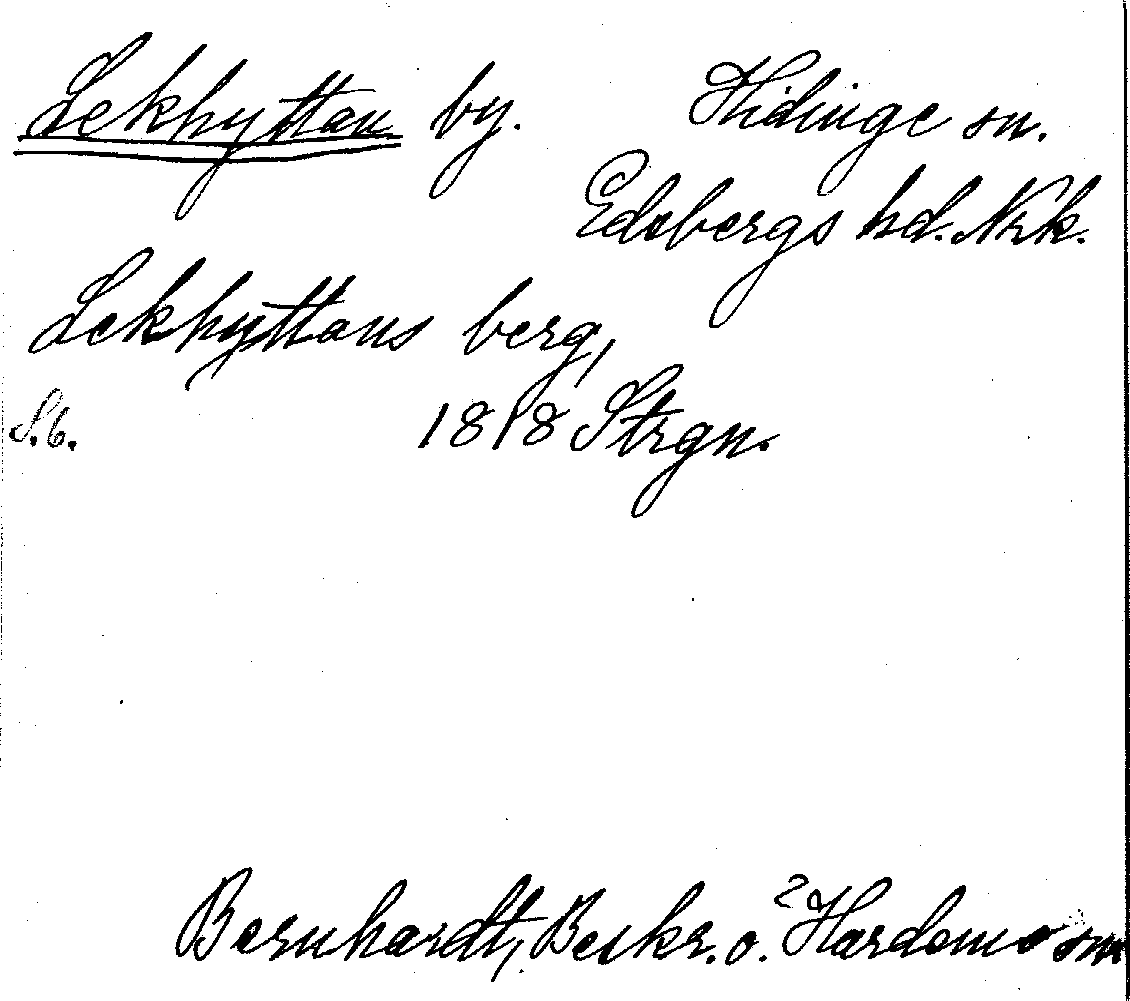 Lekhyttan by. Hidinge sn.
Edsbergs hd. Nrk.
Lekhyttans berg,
S. 6. 1818 Strgn.
Bernhardt, Beskr. o. Hardemo sn